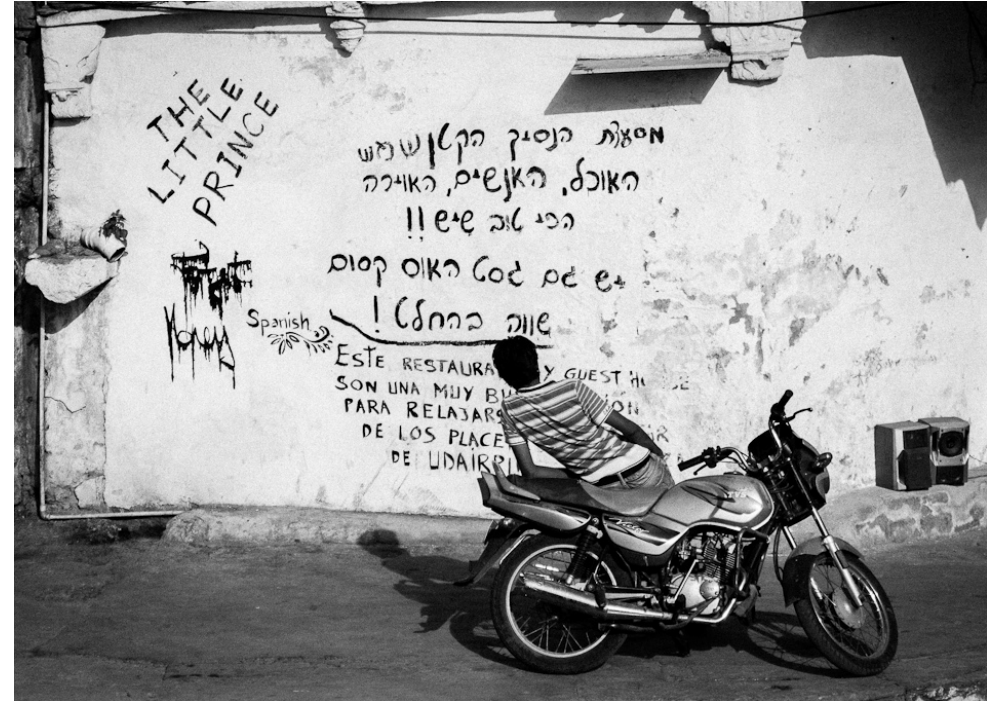 THE
LITTLE
PRINCE
מסעדת הנסיך הקטן
האוכל, האנשים, האוירה
הכי טוב שיש!!
יש גם גסט האוס קסום
שווה בהחלט!
Money
Spanish
ESTE RESTAURA Y GUEST
SON UNA MUY BU
PARA RELAJARS
DE LOS PLACE
DE UDAIRP